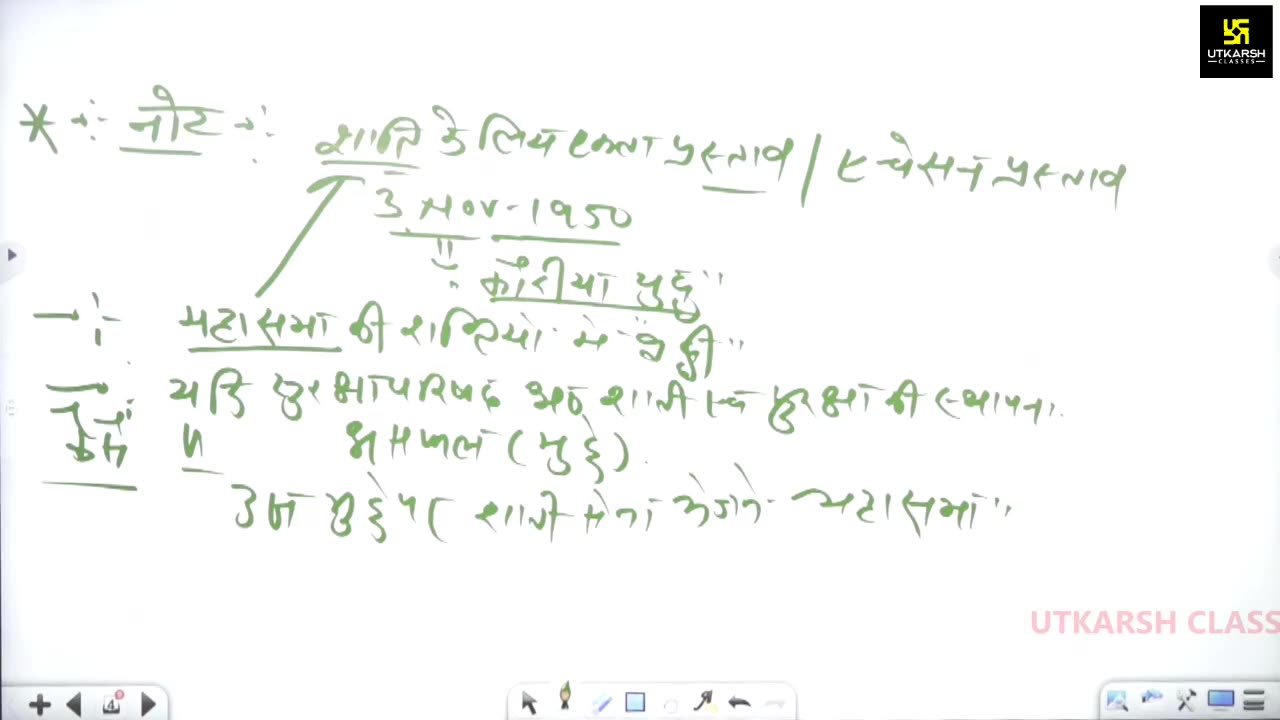 UTKARSH
CLASSES
* नोट शान्ति के लिये एकता प्रस्ताव / एचेसन प्रस्ताव
3 Nov - 1950
"कोरीया युद्ध"
→ महासभा की शक्तियों में "वृद्धी"
→ यदि सुरक्षा परिषद शान्ती एवं सुरक्षा की स्थापना
में असफल (मुद्दे).
उस मुद्दे पर शान्ती सेना महासभा"
UTKARSH CLASS
4